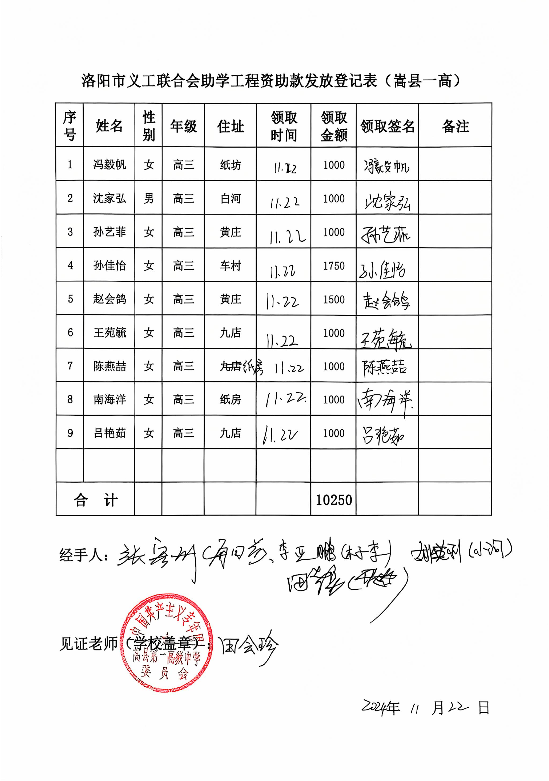 洛阳市义工联合会助学工程资助款发放登记表（嵩县一高）
序号 姓名 性别 年级 住址 领取时间 领取金额 领取签名 备注
1 冯毅帆 女 高三 纸坊 11.22 1000 冯毅帆
2 沈家弘 男 高三 白河 11.22 1000 沈家弘
3 孙艺菲 女 高三 黄庄 11.22 1000 孙艺菲
4 孙佳怡 女 高三 车村 11.22 1750 孙佳怡
5 赵会鸽 女 高三 黄庄 11.22 1500 赵会鸽
6 王苑毓 女 高三 九店 11.22 1000 王苑毓
7 陈燕喆 女 高三 九店 纸房 11.22 1000 陈燕喆
8 南海洋 女 高三 纸房 11.22 1000 南海洋
9 吕艳茹 女 高三 九店 11.22 1000 吕艳茹
合 计 10250
经手人： 李亚鹏
见证老师（学校盖章）：田会珍
中国共产主义青年团
嵩县第一高级中学
委员会
2024年 11 月 22 日